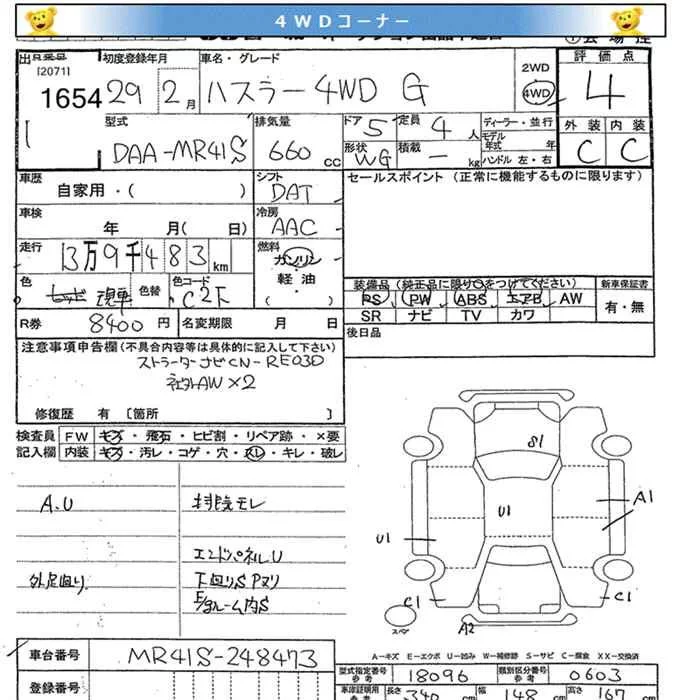 4WDコーナー
[2071]
1654
初度登録年月
29年 2月
車名・グレード
ハスラー 4WD G
2WD
4WD
評価点
4
外装 内装
C C
型式
DAA-MR41S
排気量
660 cc
ドア 5
定員 4 人
形状 WG
積載 - kg
ディーラー・並行
モデル年式 年
ハンドル 左・右
車歴
自家用・( )
シフト
DAT
セールスポイント (正常に機能するものに限ります)
車検
年 月( 日)
冷房
AAC
走行
13万9千483 km
燃料
ガソリン
軽油
( )
色
現車
色替
色コード
C2F
装備品 (純正品に限り○をつけてください)
PS PW ABS エアB AW
SR ナビ TV カワ
新車保証書
有・無
R券 8400 円
名変期限 月 日
後日品
注意事項申告欄(不具合内容等は具体的に記入して下さい)
ストラーダーナビCN-RE03D
社外AW×2
修復歴 有 [箇所 ]
検査員記入欄
FW キズ・飛石・ヒビ割・リペア跡・×要
内装 キズ・汚レ・コゲ・穴・スレ・キレ・破レ
A.U
排気モレ
エンドパネルU
外足回り
下回りS Pヌリ
E/gルーム内S
S1
U1
U1
A1
C1
C1
A2
スペア
A-キズ E-エクボ U-凹み W-補修跡 S-サビ C-腐食 XX-交換済
車台番号 MR41S-248473
型式指定番号 参考 18096
類別区分番号 参考 0603
登録番号
車庫証明用 参考
長さ 340 cm
幅 148 cm
高さ 167 cm